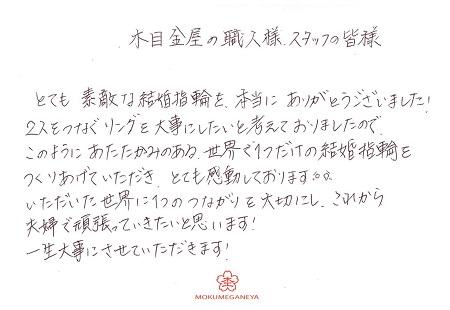 木目金屋の職人様、スタッフの皆様
とても 素敵な結婚指輪を、本当に ありがとうございました!
2人をつなぐリングを大事にしたいと考えておりましたので、
このようにあたたかみのある、世界で1つだけの結婚指輪を
つくりあげていただき、とても感動しております。
いただいた世界に1つのつながりを大切にし、これから
夫婦で頑張っていきたいと思います!
一生大事にさせていただきます!
MOKUMEGANEYA